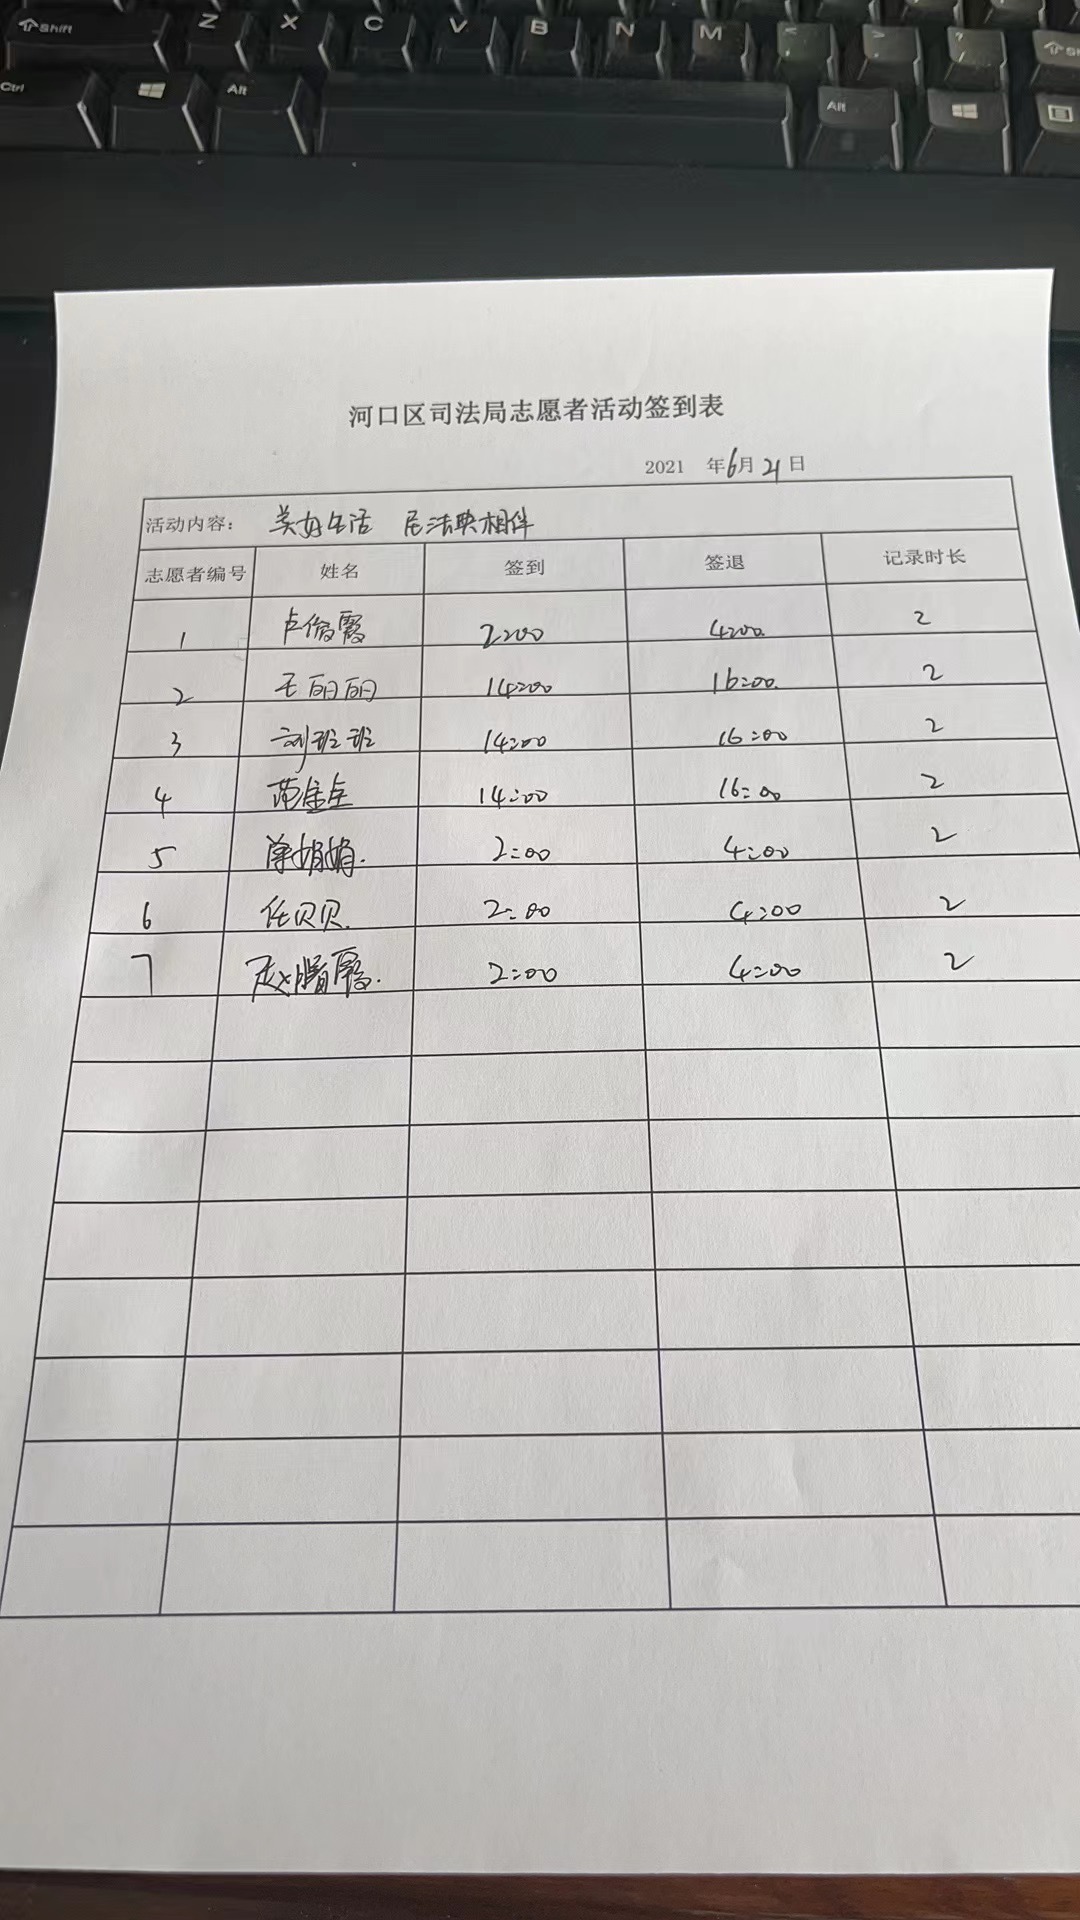 Shift Z X C V B N M < > ? Sh
Ctrl Alt Alt
河口区司法局志愿者活动签到表
2021 年6月21日
活动内容: 美好生活 民法典相伴
志愿者编号 姓名 签到 签退 记录时长
1 卢俊霞 2:00 4:00 2
2 王丽丽 14:00 16:00. 2
3 刘班班 14:00 16:00 2
4 14:00 16:00 2
5 单娟娟. 2:00 4:00 2
6 任贝贝. 2:00 4:00 2
7 赵 霞. 2:00 4:00 2